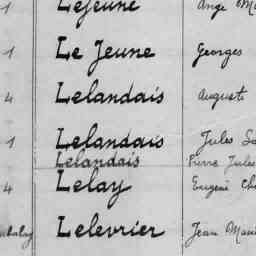 1 Lejeune Ange
1 Le Jeune Georges
4 Lelandais Auguste
1 Lelandais Jules
Lelandais Pierre Jules
4 Lelay Eugène
Lelevrier Jean Marie